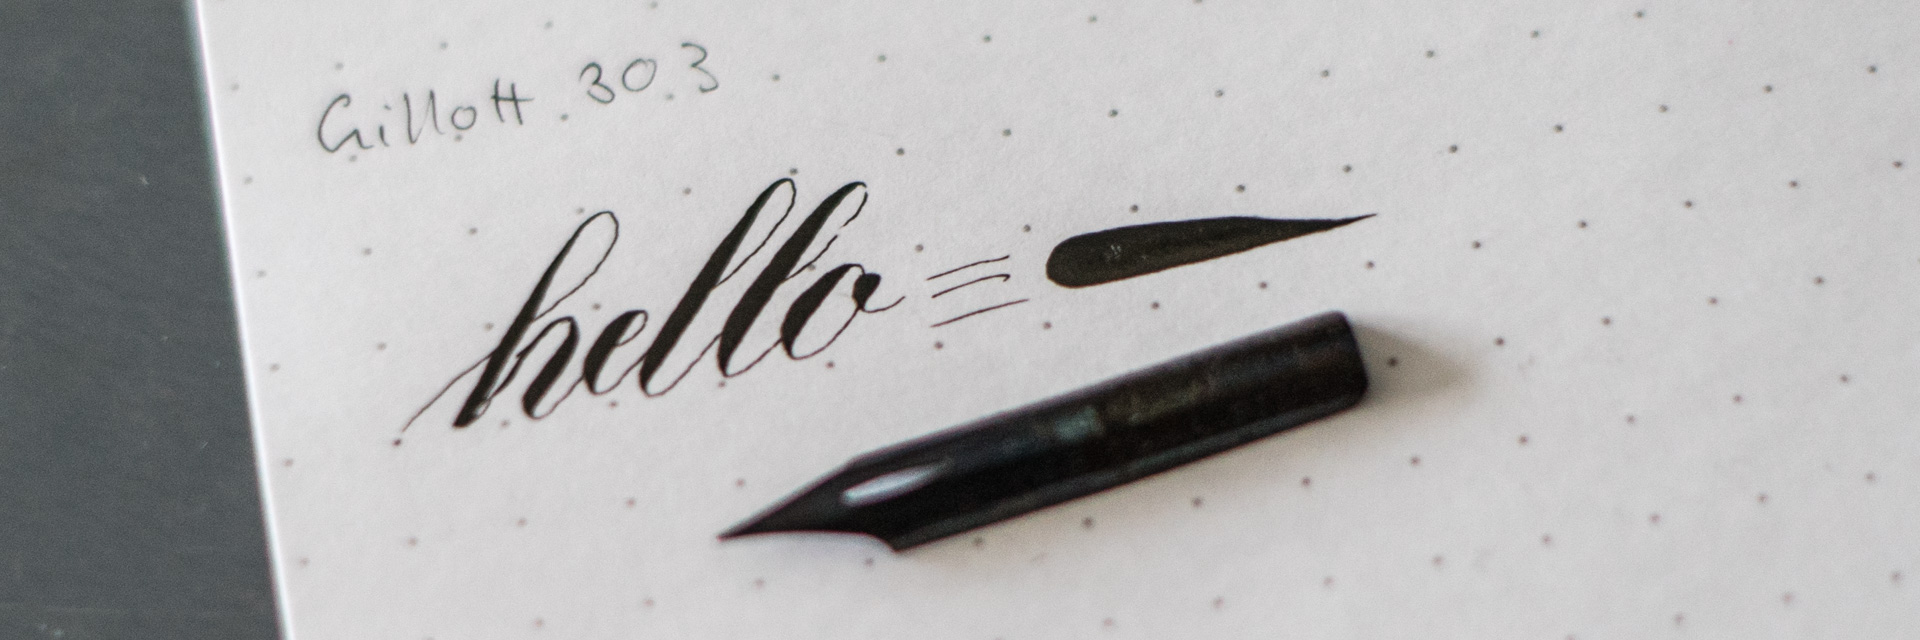 Gillott 303
hello